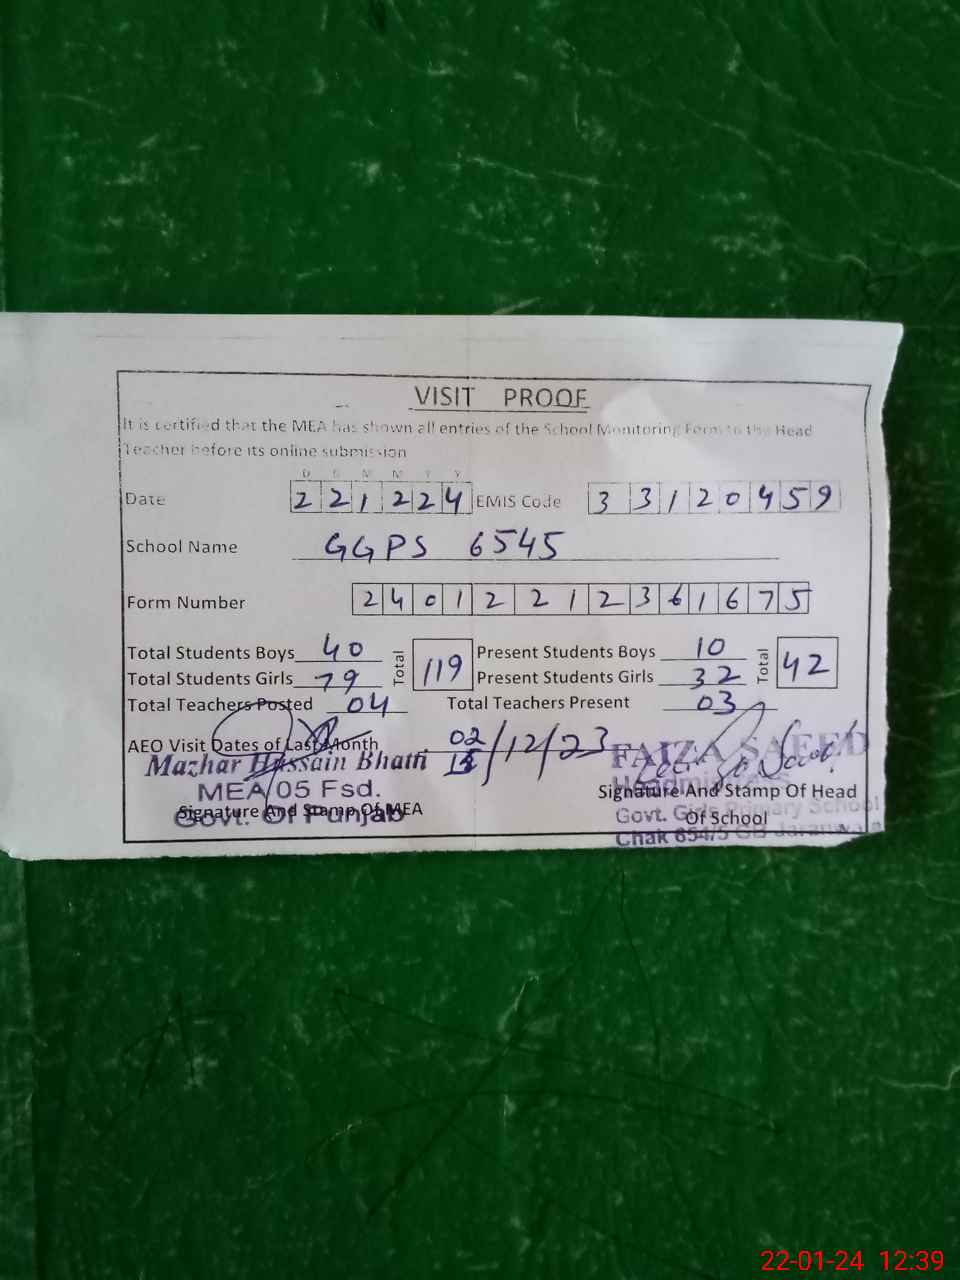 VISIT PROOF
It is certified that the MEA has shown all entries of the School Monitoring Form to the Head
Teacher before its online submission
D D M M Y Y
Date 2 2 1 2 2 4 EMIS Code 3 3 1 2 0 4 5 9
School Name GGPS 6545
Form Number 2 4 0 1 2 2 1 2 3 6 1 6 7 5
Total Students Boys 40 Total 119 Present Students Boys 10 Total 42
Total Students Girls 79 Present Students Girls 32
Total Teachers Posted 04 Total Teachers Present 03
AEO Visit Dates of Last Month 02/12/23
Mazhar Hussain Bhatti FAIZA SAEED
MEA/05 Fsd. Headmistress
Signature And Stamp Of Head
Signature And Stamp Of MEA Of School
Govt. Of Punjab Govt. Girls Primary School
Chak 654/5 GB Jaranwala
22-01-24 12:39